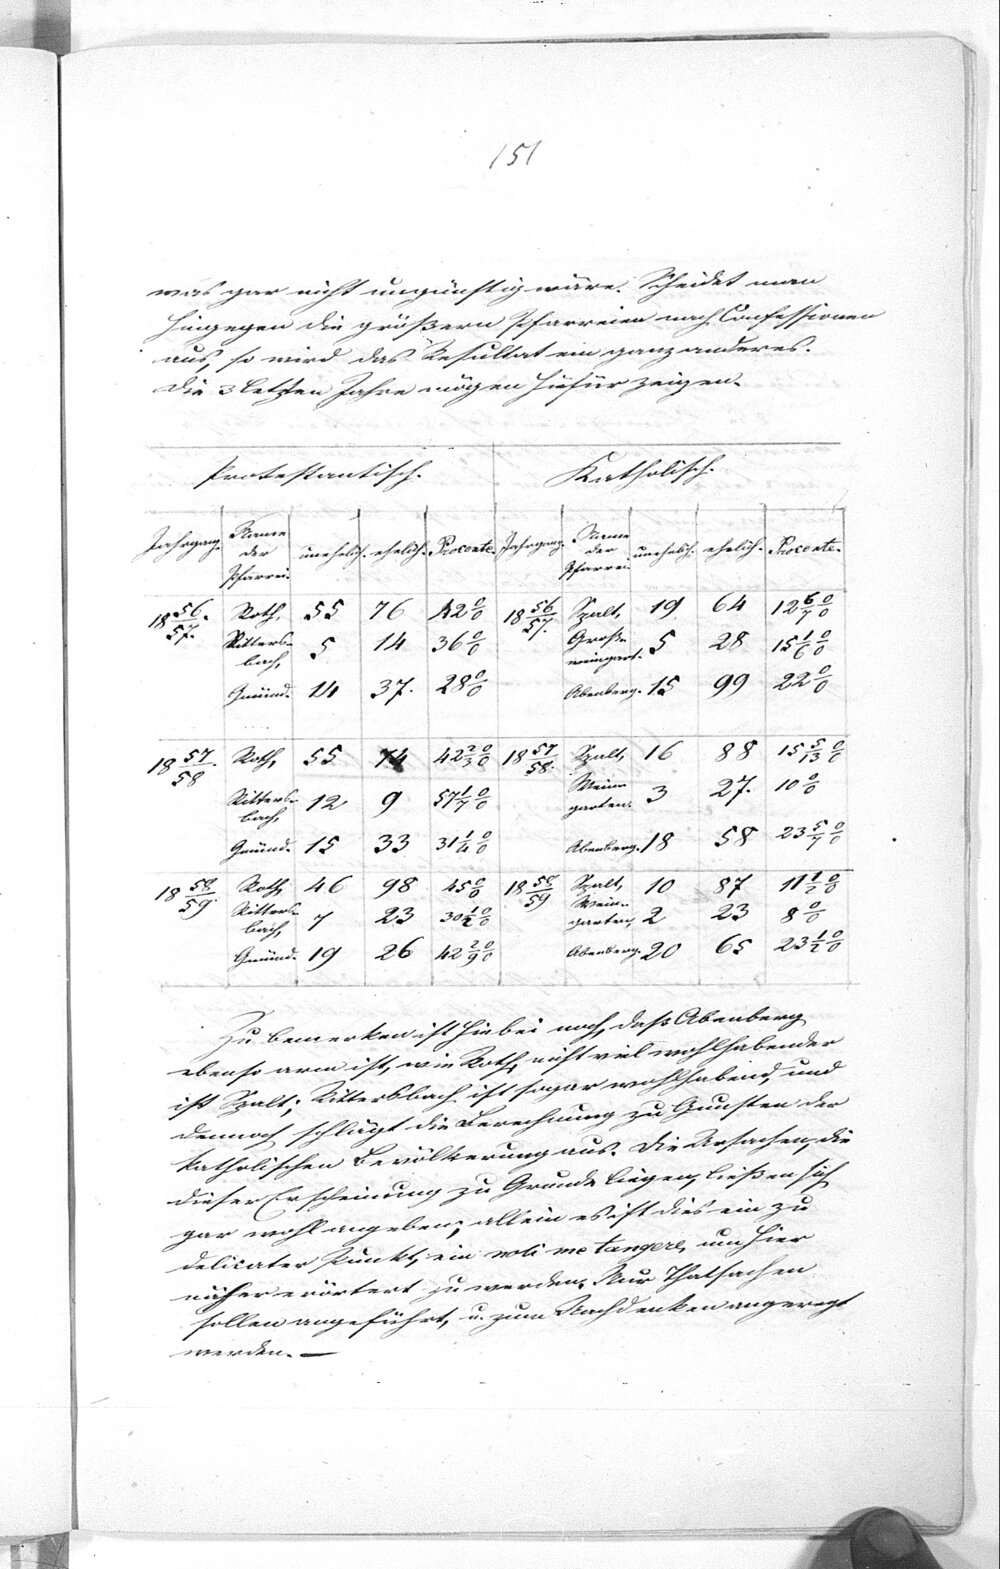 151
was gar nicht ungünstig wäre. Scheidet man
hingegen die größern Pfarreien nach Confessionen
aus, so wird das Resultat ein ganz anderes.
Die 3 letzten Jahre mögen hiefür zeigen.
Protestantisch. Katholisch.
Jahrgang. Name der Pfarrei. unehelich. ehelich. Procente. Jahrgang. Name der Pfarrei. unehelich. ehelich. Procente.
18 56/57. Roth, 55 76 42 0/0 18 56/57. Spalt, 19 64 12 6/7 0/0
Rittersbach, 5 14 36 0/0 Großweingart. 5 28 15 1/6 0/0
Gmünd. 14 37. 28 0/0 Abenberg. 15 99 22 0/0
18 57/58 Roth, 55 74 42 2/3 0/0 18 57/58. Spalt, 16 88 15 5/13 0/0
Rittersbach, 12 9 57 1/7 0/0 Weingarten. 3 27. 10 0/0
Gmünd. 15 33 31 1/4 0/0 Abenberg. 18 58 23 5/7 0/0
18 58/59. Roth, 46 98 45 0/0 18 58/59 Spalt, 10 87 11 1/2 0/0
Rittersbach, 7 23 30 1/2 0/0 Weingarten, 2 23 8 0/0
Gmünd. 19 26 42 2/9 0/0 Abenberg. 20 65 23 1/2 0/0
Zu bemerken ist hiebei noch, daß Abenberg
ebenso arm ist, wie Roth, nicht viel wohlhabender
ist Spalt; Rittersbach ist sogar wohlhabend, und
dennoch schlägt die Berechnung zu Gunsten der
katholischen Bevölkerung aus. Die Ursachen, die
dieser Erscheinung zu Grunde liegen, ließen sich
gar wohl angeben; allein es ist dies ein zu
delicater Punkt, ein noli me tangere, um hier
näher erörtert zu werden. Nur Thatsachen
sollen angeführt, u. zum Nachdenken angeregt
werden. —